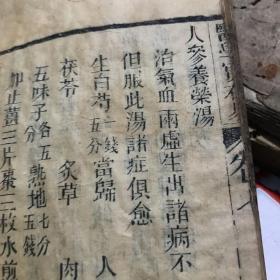 人參養榮湯
治氣血兩虛生出諸病不
但服此湯諸症俱愈
生白芍一錢五分當歸 人
茯苓 炙草 肉
五味子各五分熟地七分五錢
加止薑三片棗三枚水煎